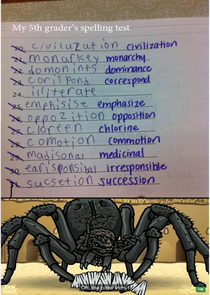 My 5th grader's spelling test
20. civiluzation civilization
21. monarkey monarchy
22. domonints dominance
23. corispond correspond
24. illiterate
25. emphisise emphasize
26. oppozition opposition
27. cloreen chlorine
28. comotion commotion
29. madisonal medicinal
30. earisponsibal irresponsible
sucsetion succession